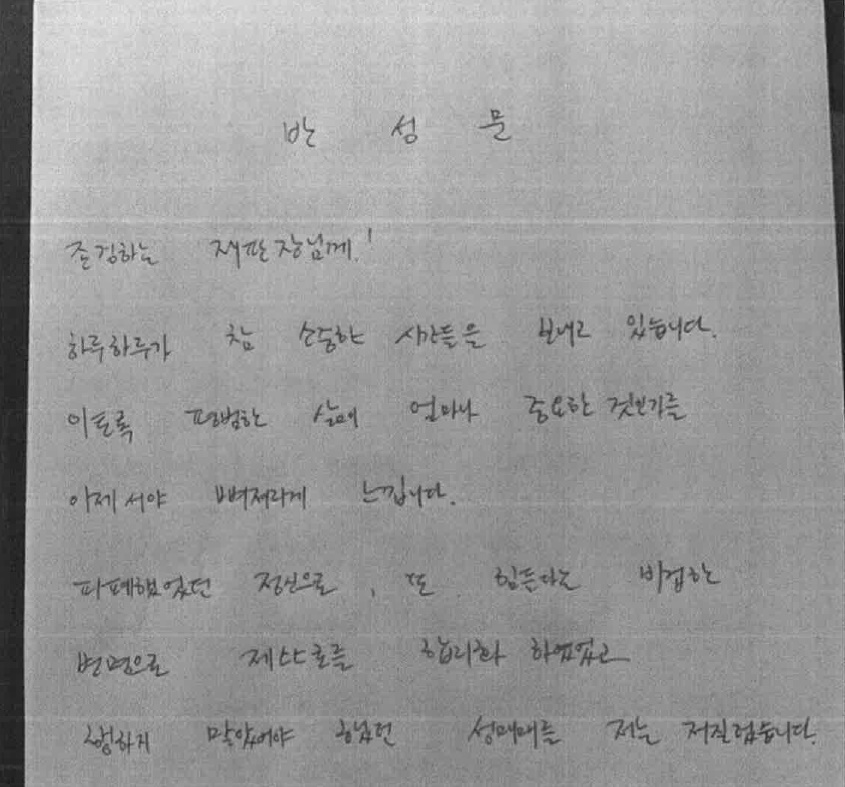 반 성 문
존경하는 재판장님께!
하루하루가 참 소중한 시간들을 보내고 있습니다.
이토록 평범한 삶에 얼마나 중요한 것인가를
이제서야 뼈저리게 느낍니다.
피폐했었던 정신으로, 또 힘든다는 비겁한
변명으로 제 스스로를 합리화 하였었고
행하지 말았어야 했던 성매매를 저는 저질렀습니다.